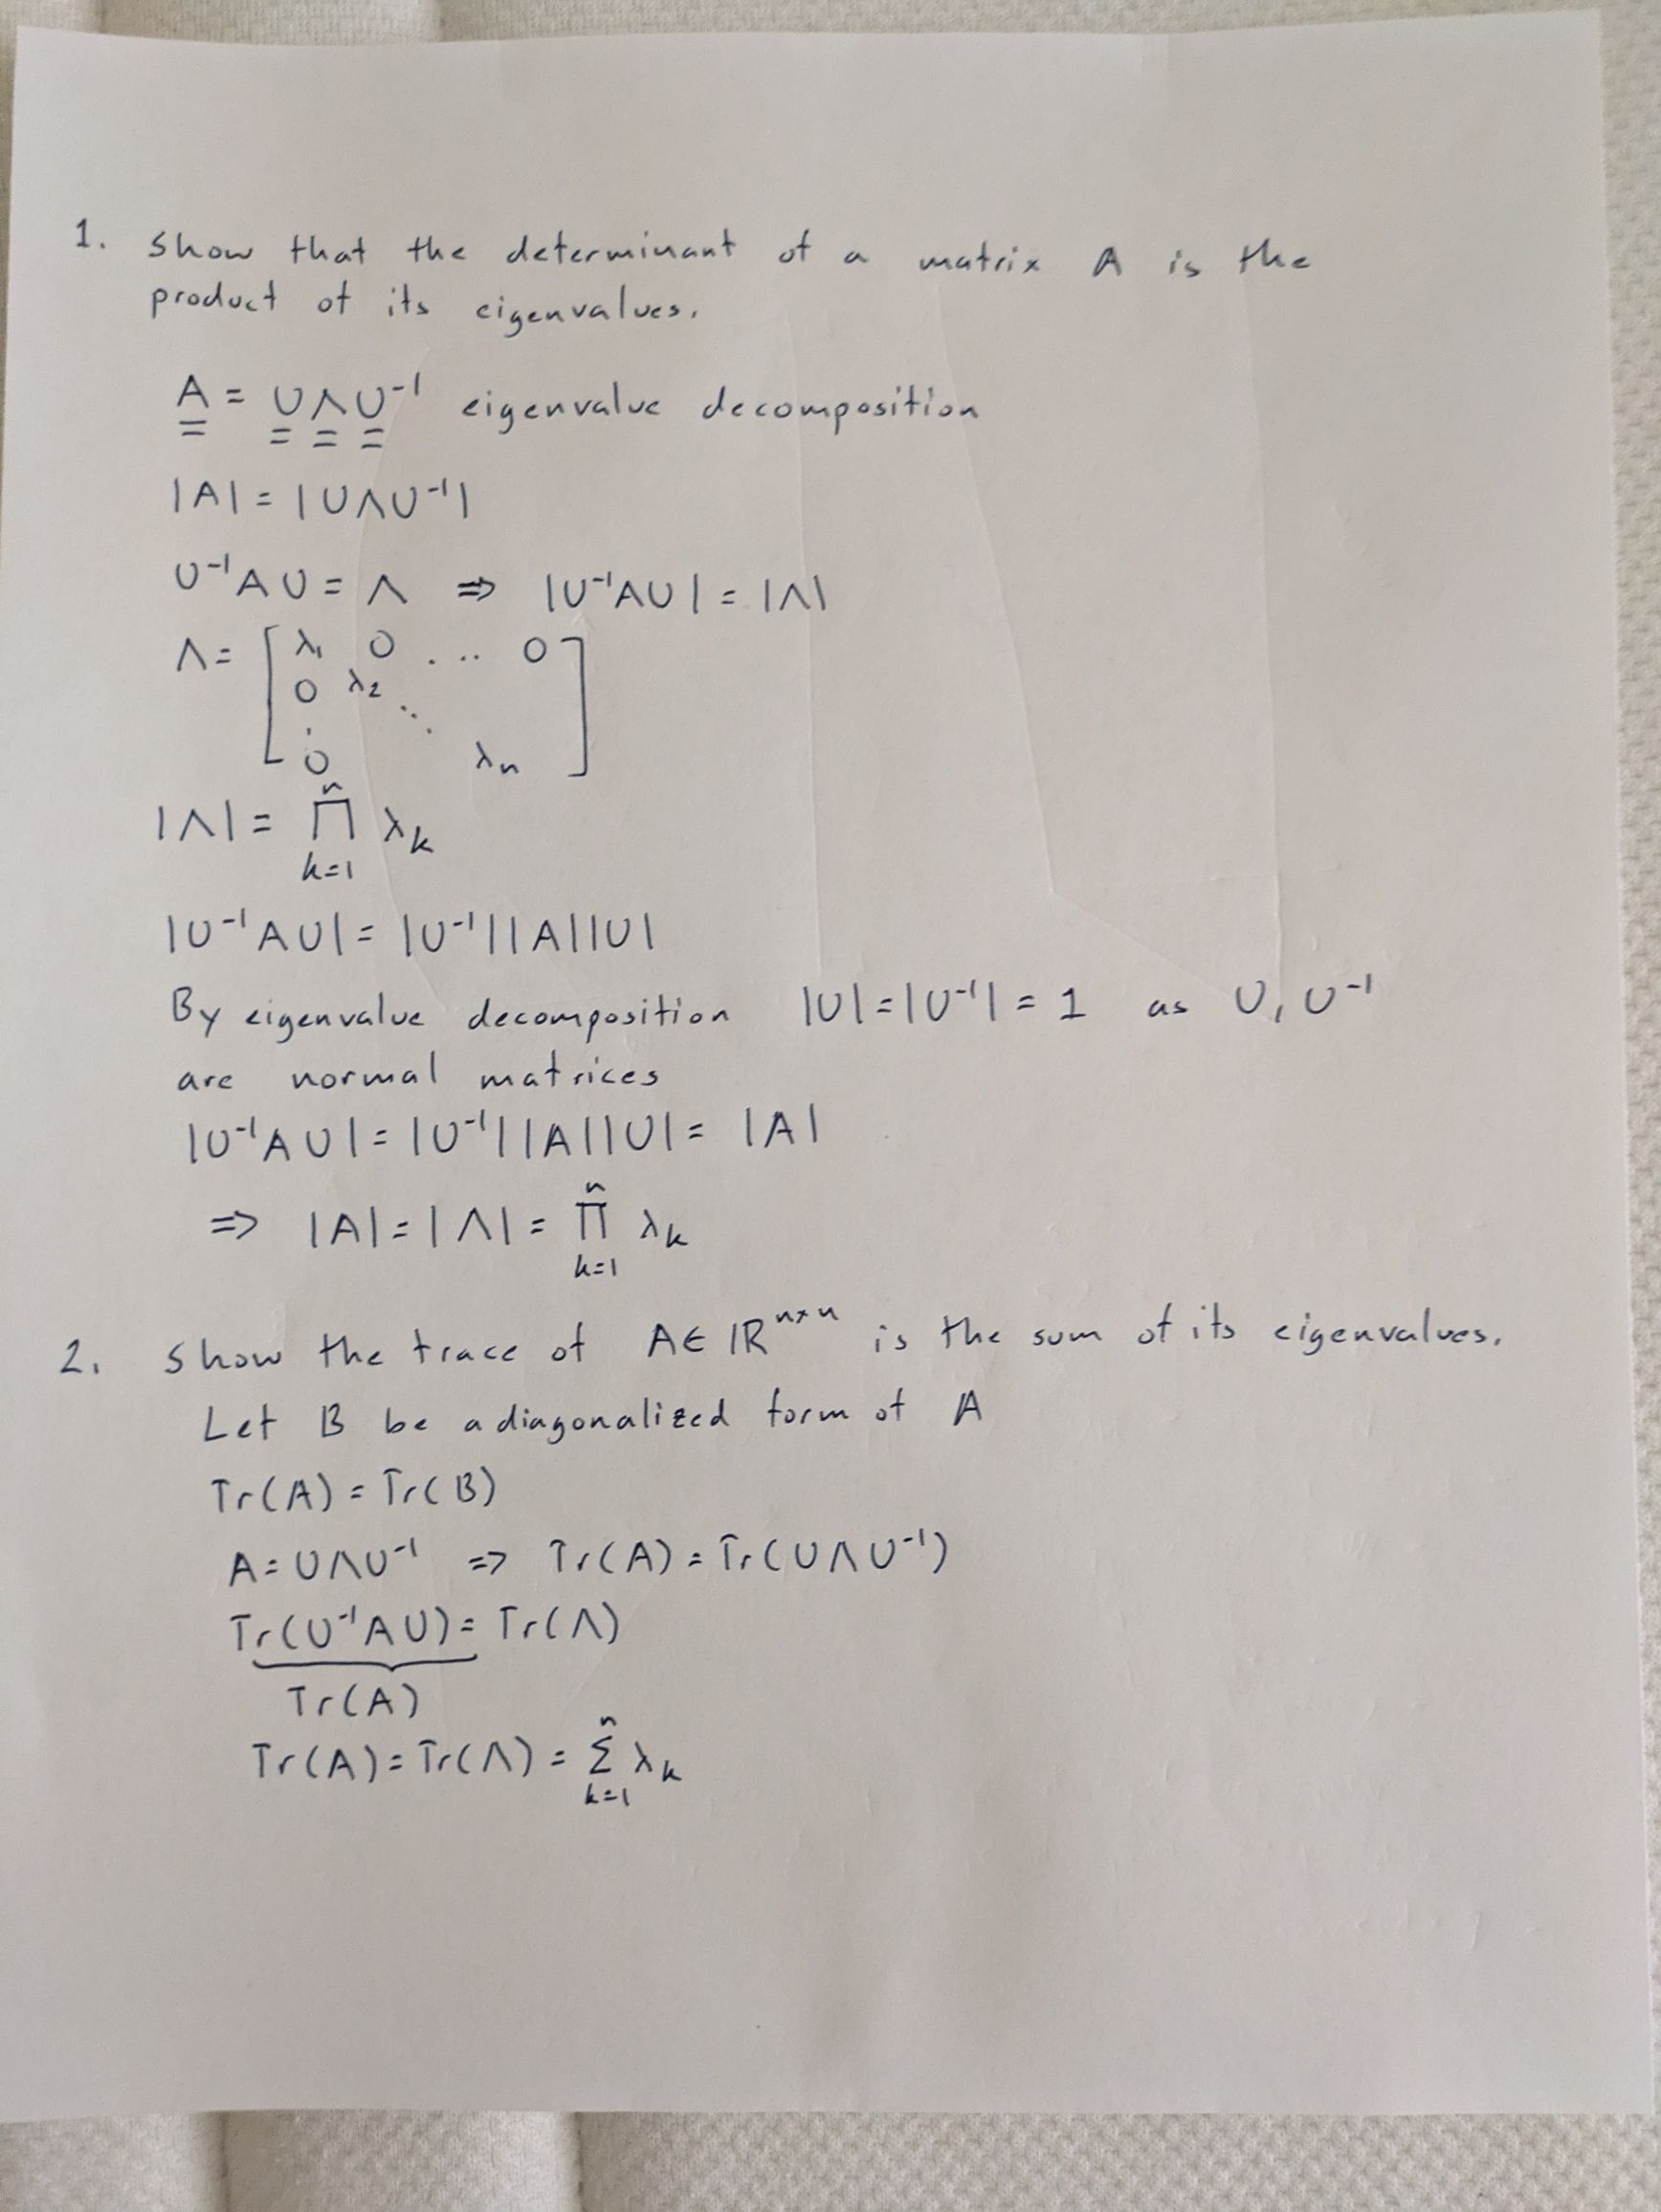 1. Show that the determinant of a matrix A is the
product of its eigenvalues.
A = UΛU⁻¹ eigenvalue decomposition
|A| = |UΛU⁻¹|
U⁻¹AU = Λ ⇒ |U⁻¹AU| = |Λ|
Λ = [ λ₁ 0 . . . 0 ]
0 λ₂ ⋱
.
0 λn
|Λ| = n ∏ k=1 λk
|U⁻¹AU| = |U⁻¹||A||U|
By eigenvalue decomposition |U| = |U⁻¹| = 1 as U, U⁻¹
are normal matrices
|U⁻¹AU| = |U⁻¹||A||U| = |A|
⇒ |A| = |Λ| = n ∏ k=1 λk
2. Show the trace of A ∈ ℝⁿˣⁿ is the sum of its eigenvalues.
Let B be a diagonalized form of A
Tr(A) = Tr(B)
A = UΛU⁻¹ ⇒ Tr(A) = Tr(UΛU⁻¹)
Tr(U⁻¹AU) = Tr(Λ)
Tr(A)
Tr(A) = Tr(Λ) = n Σ k=1 λk